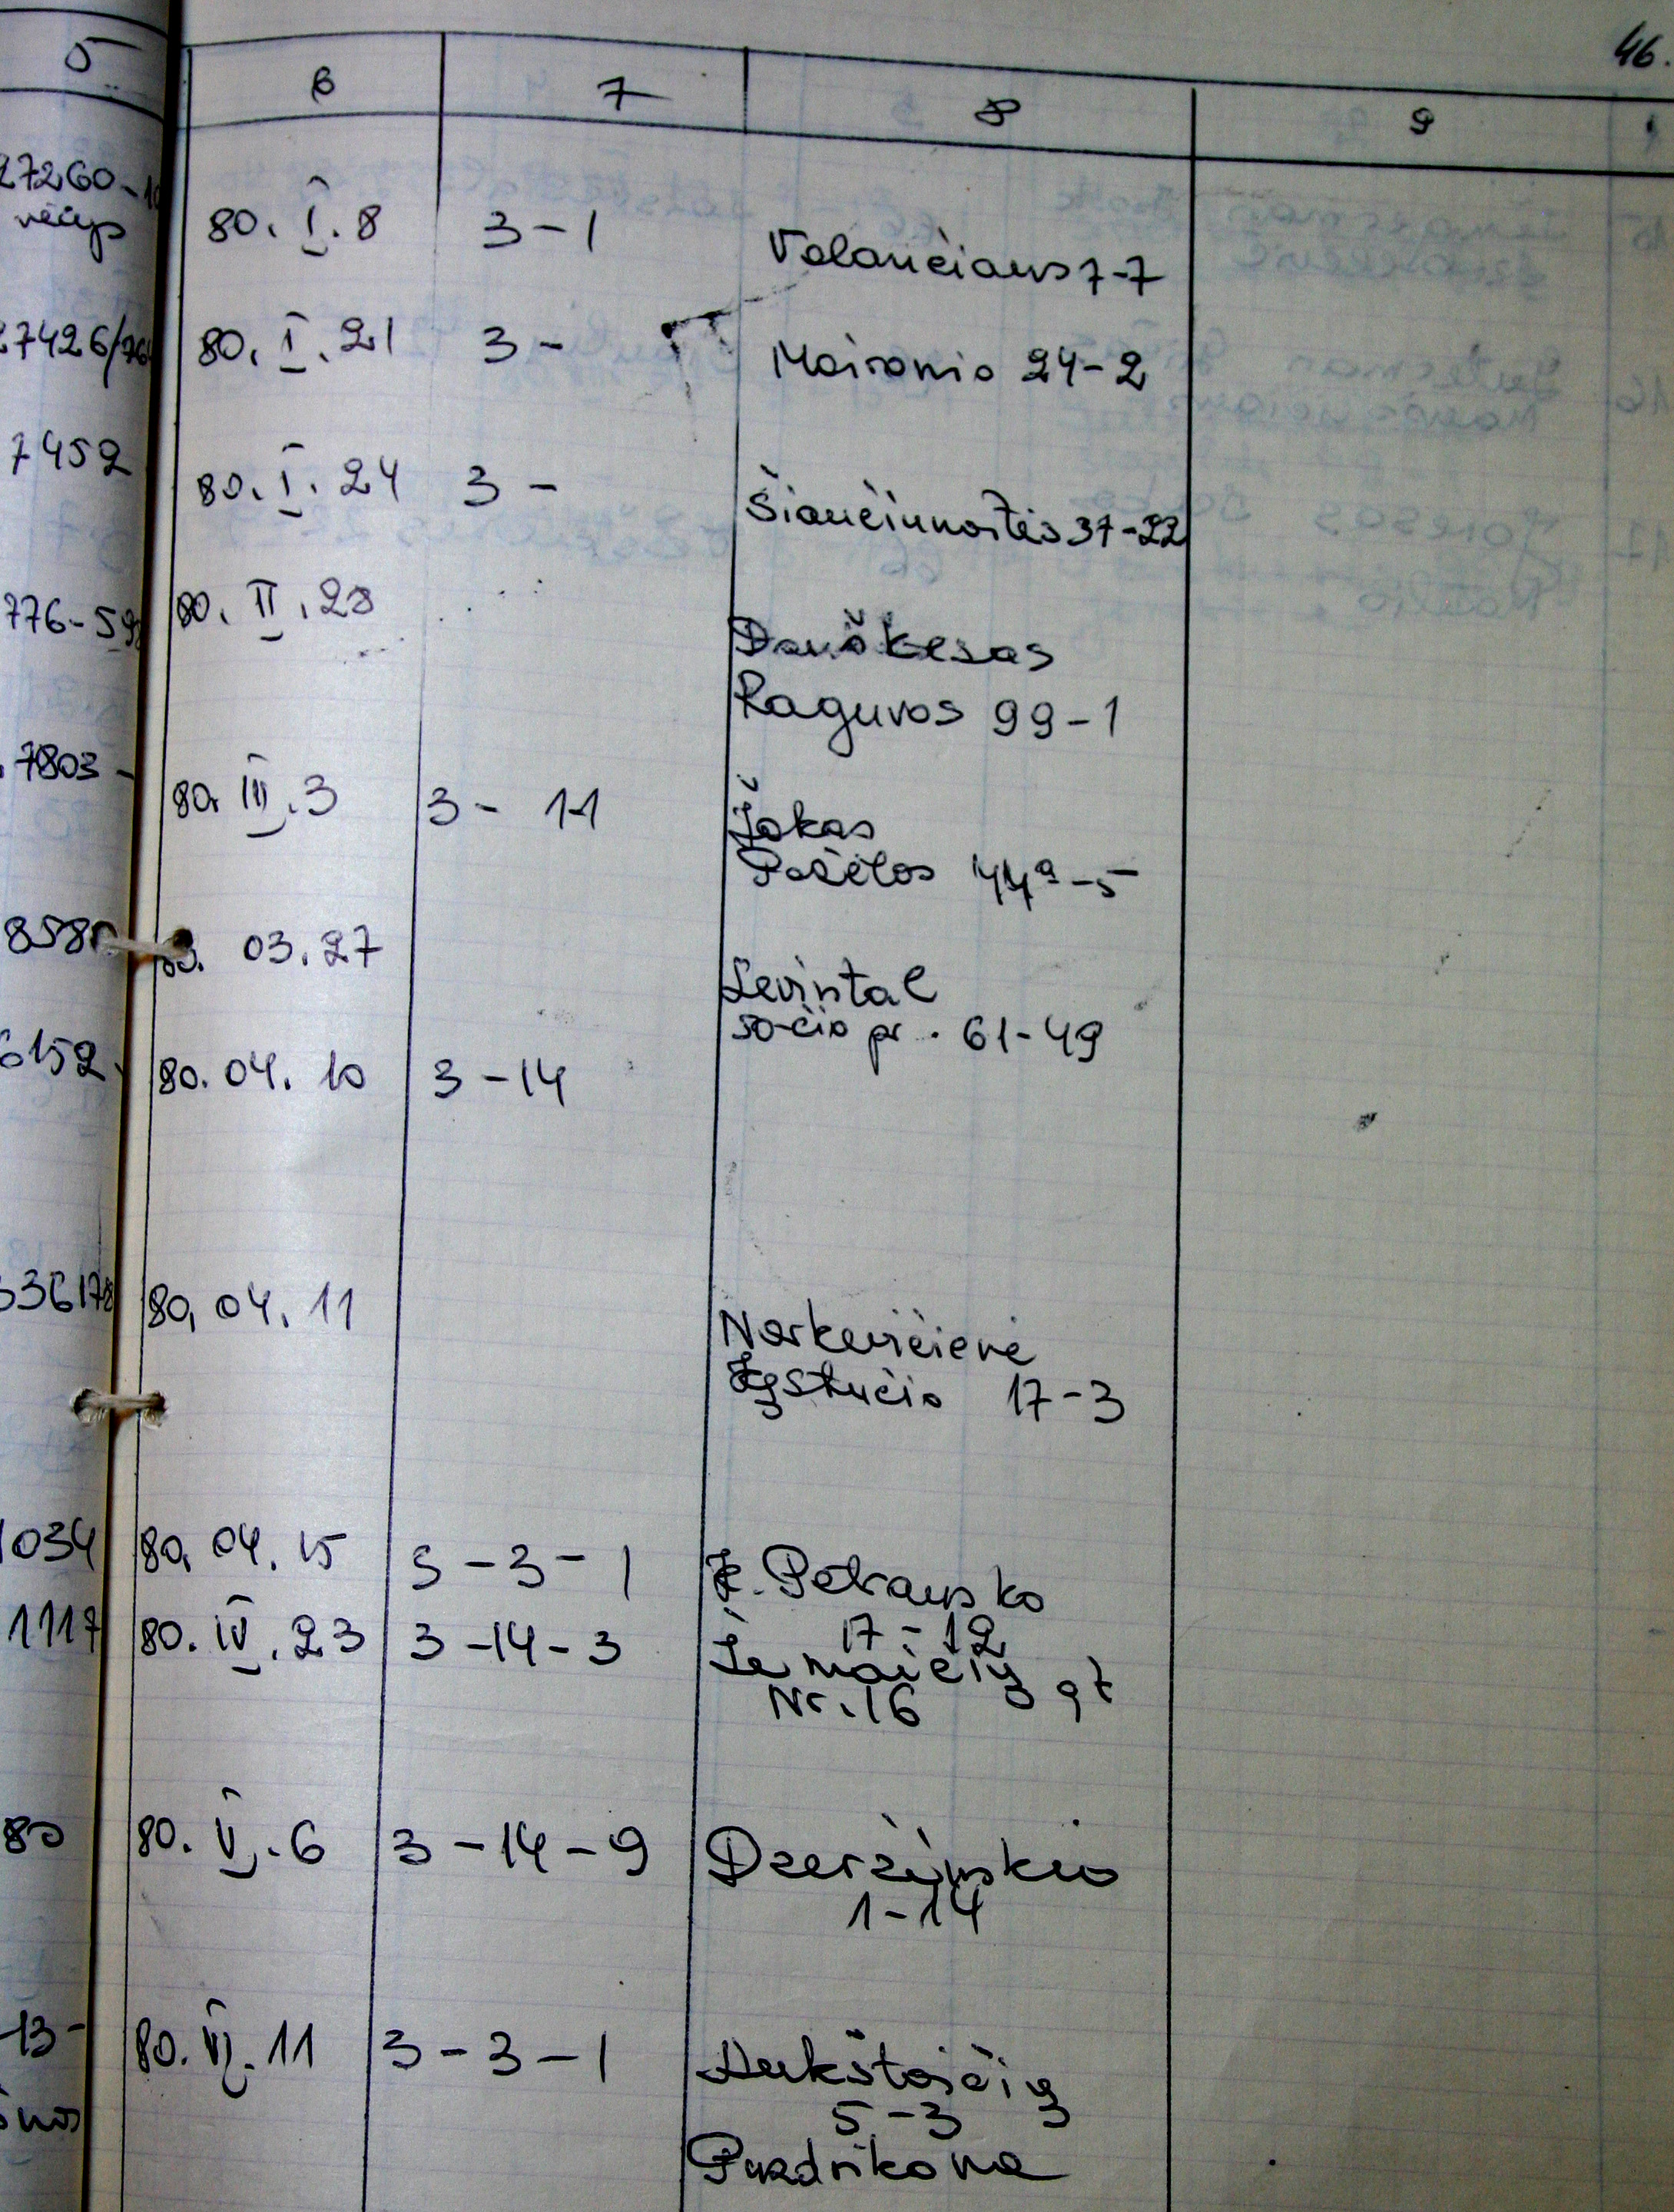 46.
5 6 7 8 9
27260-10
vičys 80. I. 8 3-1
Valančiaus 7-7
27426/76 80. I. 21 3-
Maironio 24-2
7452 80. I. 24 3-
Šiaučiunaitės 37-22
776-59 80. II. 28
Dauškesas
Raguvos 99-1
7803- 80. III. 3 3- 11
Žakas
Požėlos 44ª-5
858 03.27
Levintal
50-čio pr. 61-49
6152 80. 04. 10 3-14
336178 80. 04. 11
Norkevičienė
Kęstučio 17-3
1034 80. 04. 15 3-3-1 K. Petrausko
17-12
1117 80. IV. 23 3-14-3 Žemaičių gt
Nr. 16
80 80. V. 6 3-14-9 Dzeržinskio
1-14
13- 80. VI. 11 3-3-1 Aukštaičių
5-3
Pundrikova